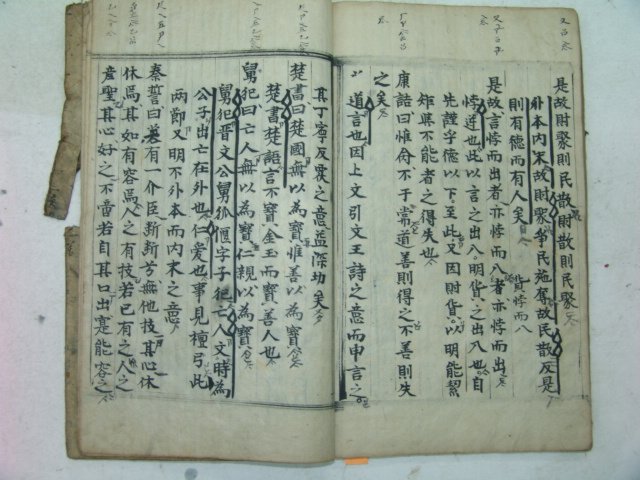 是故財聚則民散財散則民聚
外本內末故財聚爭民施奪故民散反是
則有德而有人矣
是故言悖而出者亦悖而入貨悖而入
者亦悖而出
悖逆也此以言之出入明貨之出入也自
先謹乎德以下至此又因財貨以明能絜
矩與不能者之得失也
康誥曰惟命不于常道善則得之不善則失
之矣
道言也因上文引文王詩之意而申言之
其丁寧反覆之意益深切矣
楚書曰楚國無以為寶惟善以為寶
楚書楚語言不寶金玉而寶善人也
舅犯曰亡人無以為寶仁親以為寶
舅犯晉文公舅狐偃字子犯亡人文時為
公子出亡在外也仁愛也事見檀弓此
兩節又明不外本而內末之意
秦誓曰若有一介臣斷斷兮無他技其心休
休焉其如有容焉人之有技若已有之人之
彦聖其心好之不啻若自其口出寔能容之